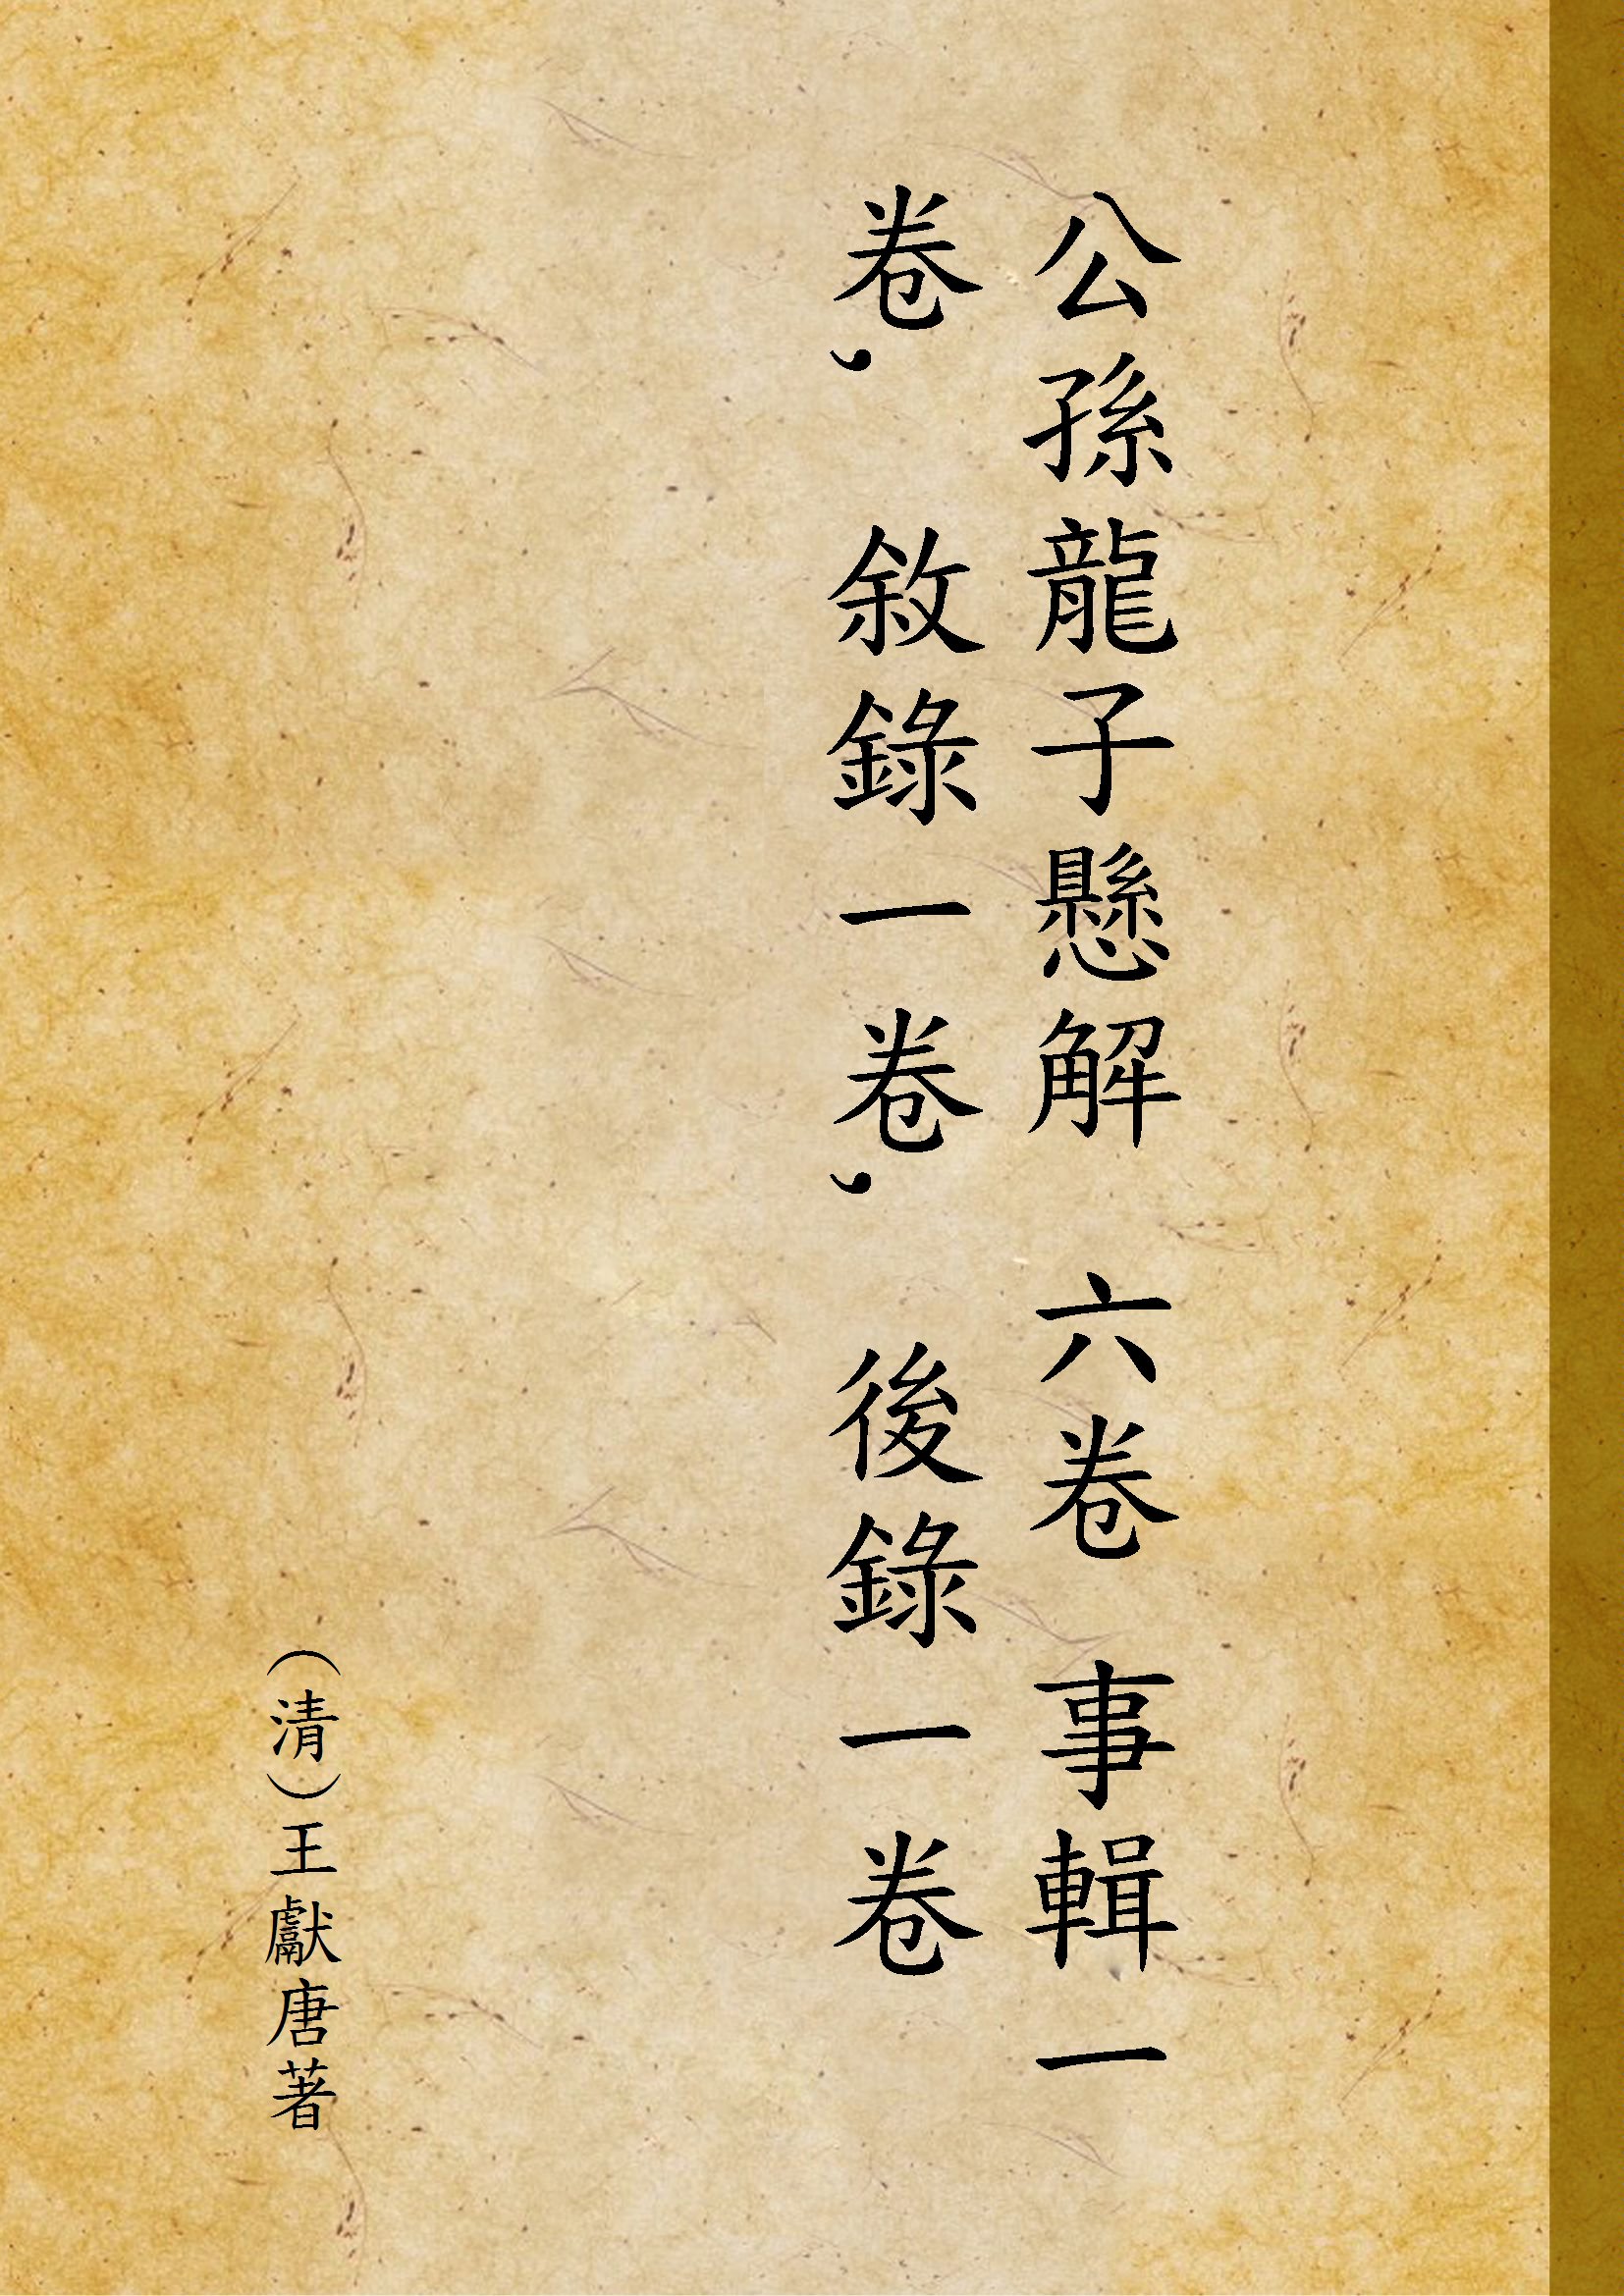 公孫龍子懸解　六卷　事輯一
卷，　敘錄一卷，　後錄一卷
（清）王獻唐著